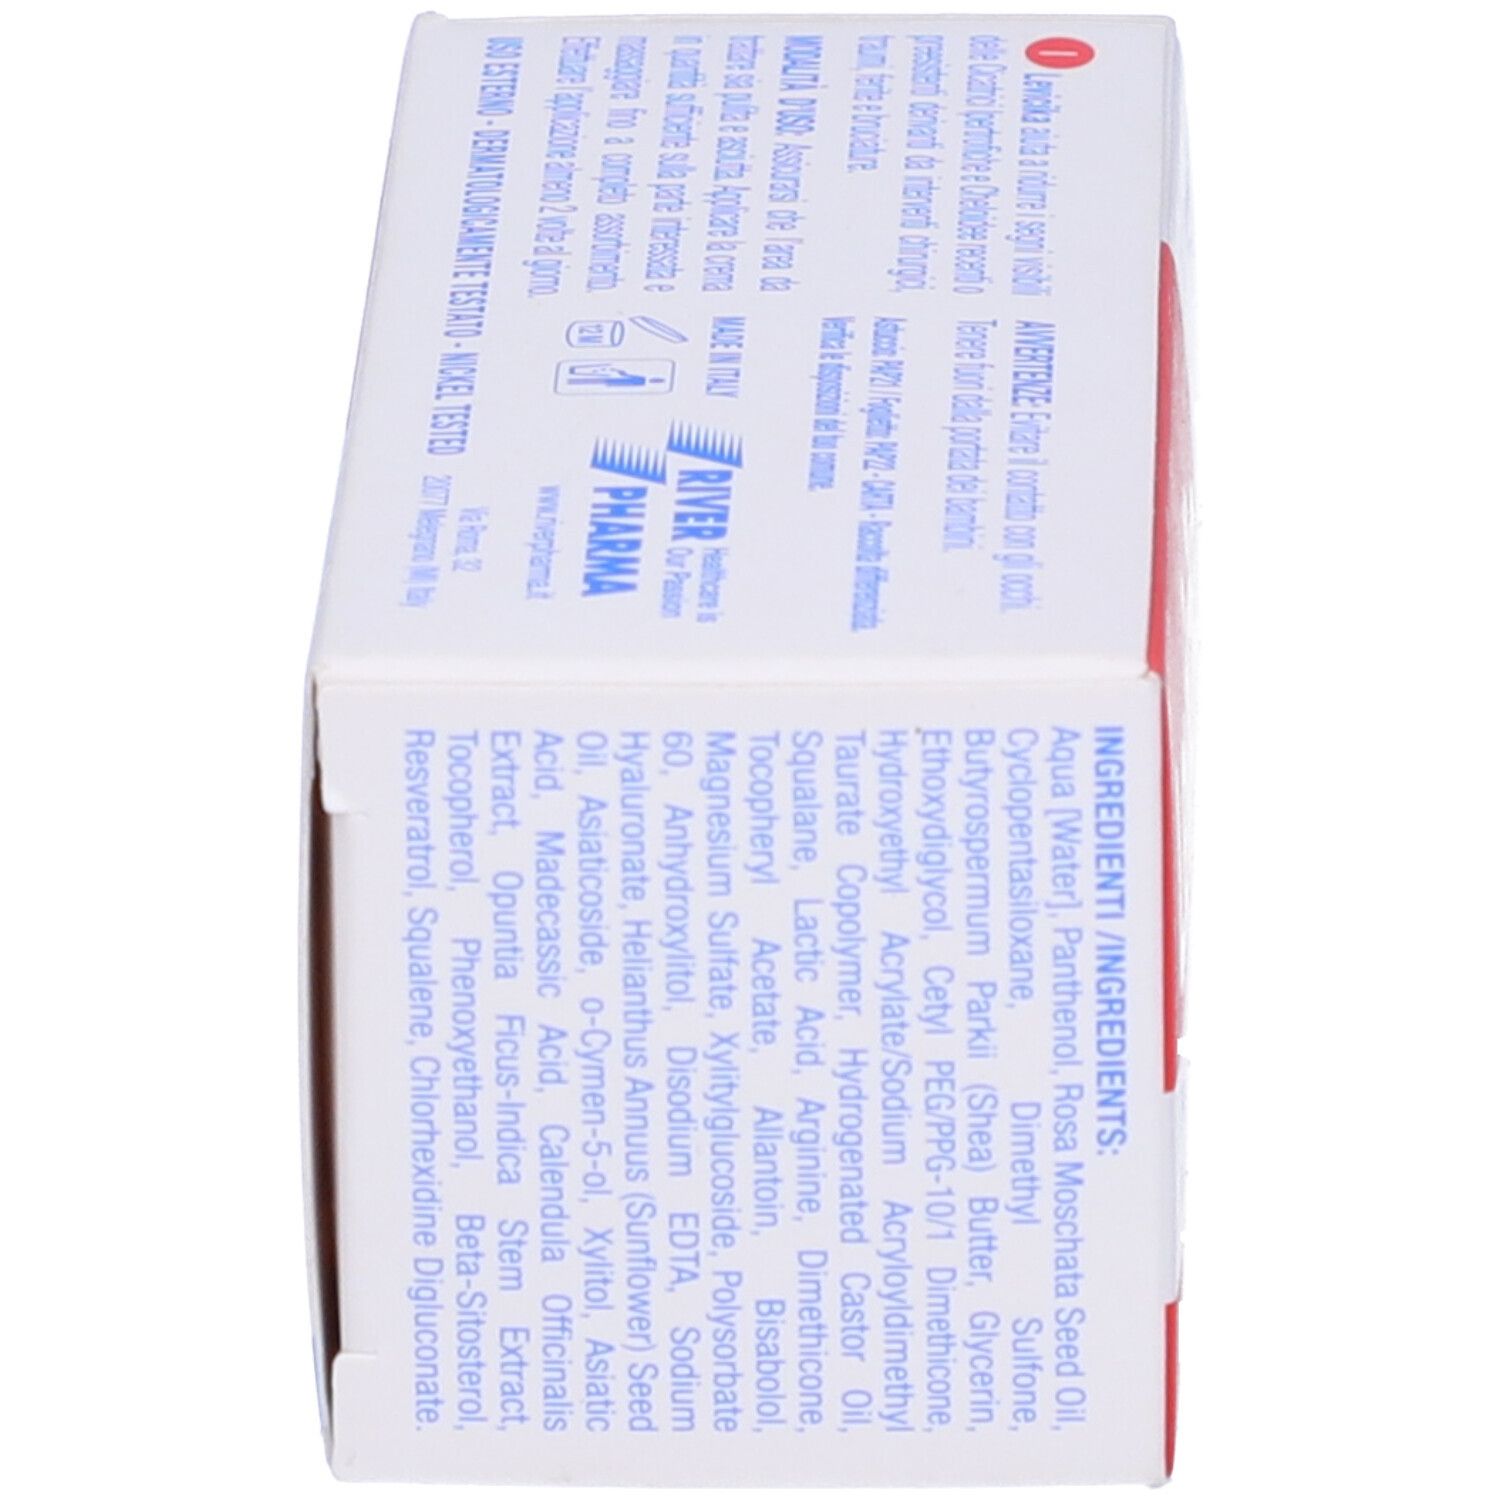 I
Levicika aiuta a ridurre i segni visibili
delle Cicatrici Ipertrofiche e Cheloidee recenti o
preesistenti derivanti da interventi chirurgici,
traumi, ferite e bruciature.
MODALITÀ D'USO: Assicurarsi che l'area da
trattare sia pulita e asciutta. Applicare la crema
in quantità sufficiente sulla parte interessata e
massaggiare fino a completo assorbimento.
Effettuare l'applicazione almeno 2 volte al giorno.
USO ESTERNO - DERMATOLOGICAMENTE TESTATO - NICKEL TESTED
AVVERTENZE: Evitare il contatto con gli occhi.
Tenere fuori dalla portata dei bambini.
Astuccio: PAP21 / Foglietto: PAP22 - CARTA - Raccolta differenziata.
Verifica le disposizioni del tuo comune.
MADE IN ITALY
12 M
RIVER
PHARMA
Healthcare is
Our Passion
www.riverpharma.it
Via Roma, 32
20077 Melegnano (MI) Italy
INGREDIENTI /INGREDIENTS:
Aqua [Water], Panthenol, Rosa Moschata Seed Oil,
Cyclopentasiloxane, Dimethyl Sulfone,
Butyrospermum Parkii (Shea) Butter, Glycerin,
Ethoxydiglycol, Cetyl PEG/PPG-10/1 Dimethicone,
Hydroxyethyl Acrylate/Sodium Acryloyldimethyl
Taurate Copolymer, Hydrogenated Castor Oil,
Squalane, Lactic Acid, Arginine, Dimethicone,
Tocopheryl Acetate, Allantoin, Bisabolol,
Magnesium Sulfate, Xylitylglucoside, Polysorbate
60, Anhydroxylitol, Disodium EDTA, Sodium
Hyaluronate, Helianthus Annuus (Sunflower) Seed
Oil, Asiaticoside, o-Cymen-5-ol, Xylitol, Asiatic
Acid, Madecassic Acid, Calendula Officinalis
Extract, Opuntia Ficus-Indica Stem Extract,
Tocopherol, Phenoxyethanol, Beta-Sitosterol,
Resveratrol, Squalene, Chlorhexidine Digluconate.